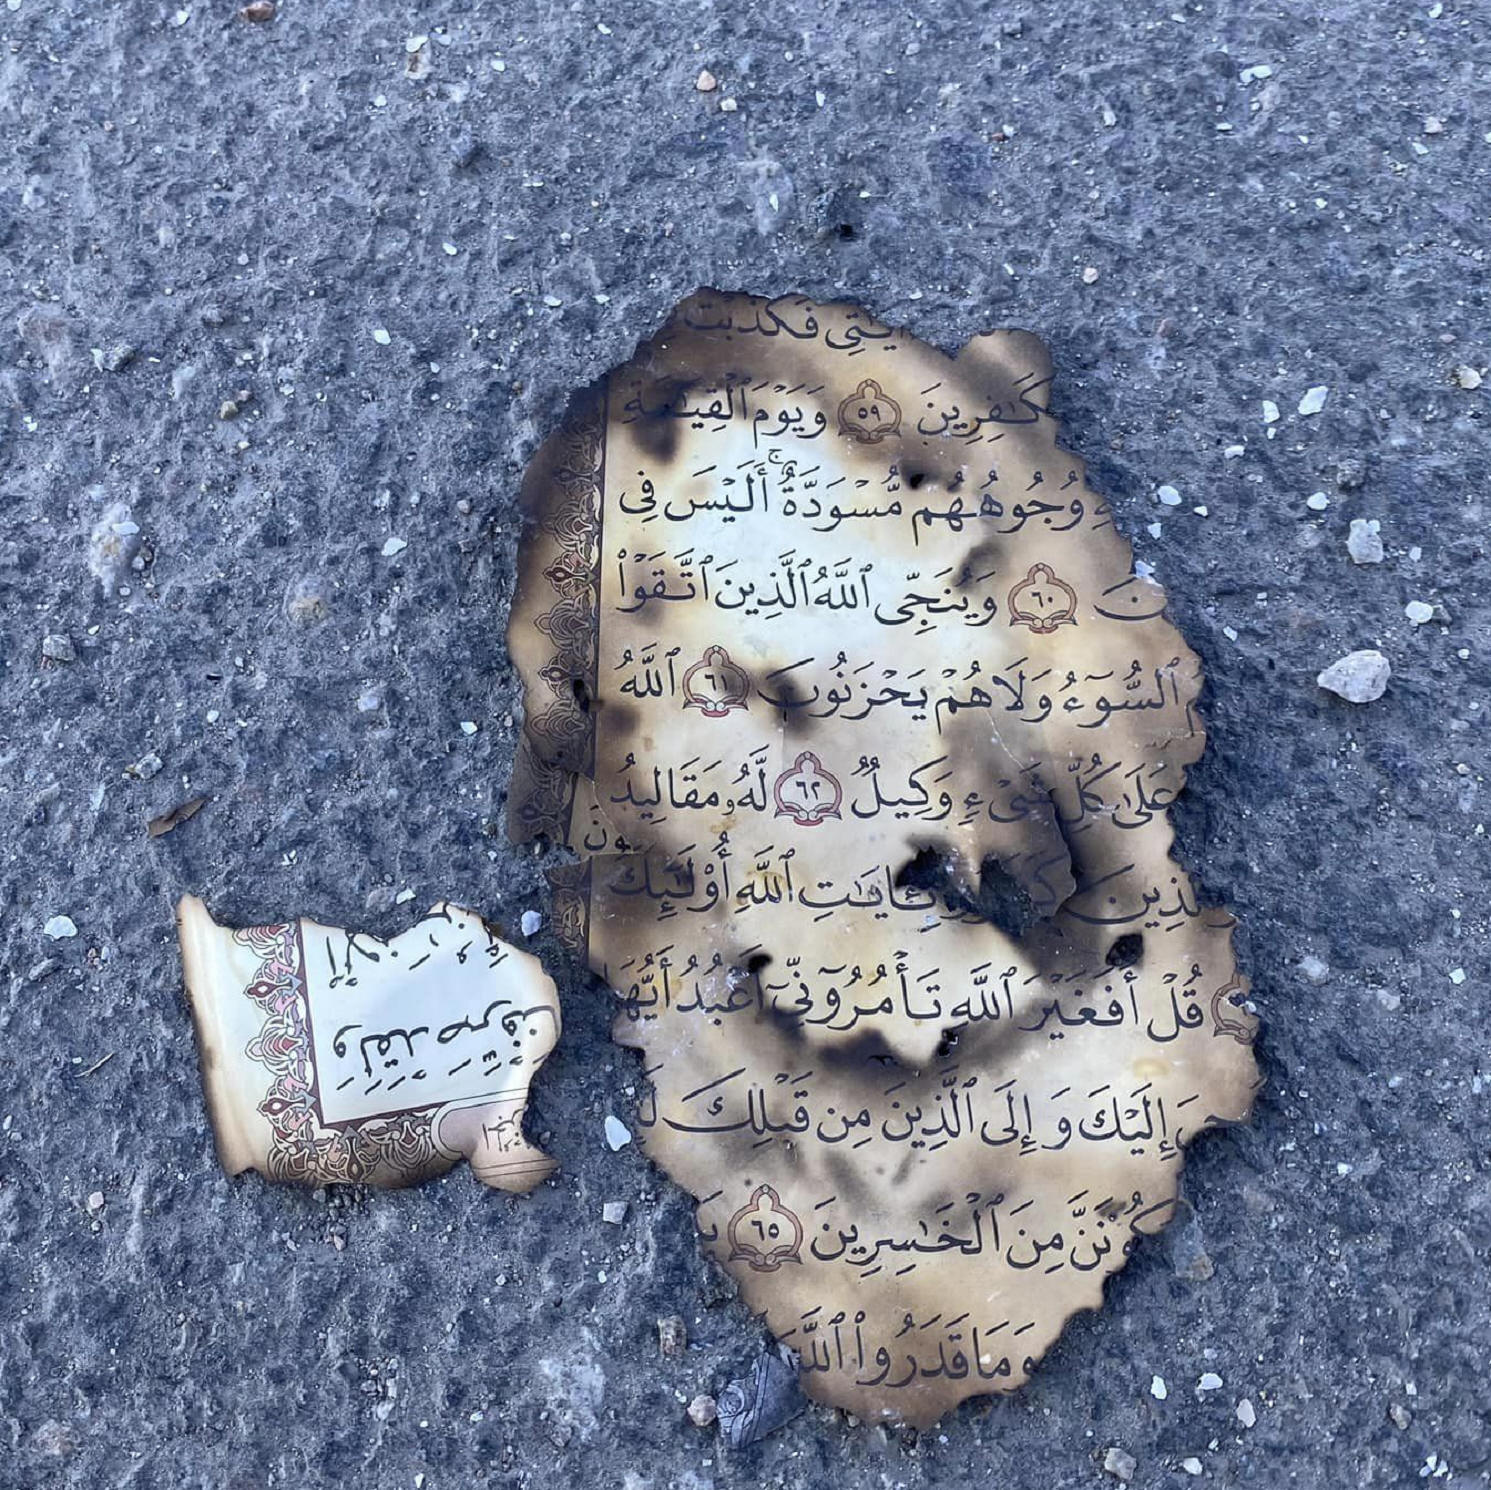 ايتي فكذبت
كَـٰفِرِينَ ٥٩ وَيَوْمَ ٱلْقِيَـٰمَةِ
وُجُوهُهُم مُّسْوَدَّةٌ ۚ أَلَيْسَ فِى
نَ ٦٠ وَيُنَجِّى ٱللَّهُ ٱلَّذِينَ ٱتَّقَوْا۟
ٱلسُّوٓءُ وَلَا هُمْ يَحْزَنُونَ ٦١ ٱللَّهُ
عَلَىٰ كُلِّ شَىْءٍ وَكِيلٌ ٦٢ لَّهُۥ مَقَالِيدُ
ون
لَّذِينَ بِـَٔايَـٰتِ ٱللَّهِ أُو۟لَـٰٓئِكَ
قُلْ أَفَغَيْرَ ٱللَّهِ تَأْمُرُوٓنِّىٓ أَعْبُدُ أَيُّهَا
إِلَيْكَ وَإِلَى ٱلَّذِينَ مِن قَبْلِكَ لَ
كُونَنَّ مِنَ ٱلْخَـٰسِرِينَ ٦٥
وَمَا قَدَرُوا۟ ٱللَّهَ
وَلَقَدْ صَرَّفْنَ